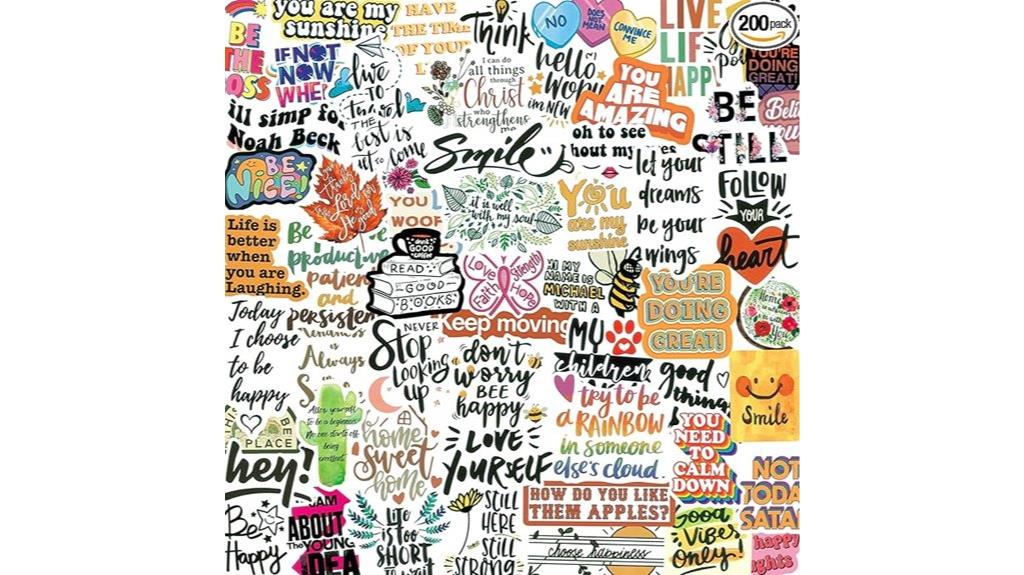 you are my
sunshine
HAVE
THE TIME
OF YOUR
L
Think
NO
DOES
NOT
MEAN
CONVINCE
ME
LIVE
LIF
HAPP
200 pack
YOU'RE
DOING
GREAT!
BE
THE
OSS
IF NOT
NOW
WHEN
live
TO
Travel
THE
best is
yet to come
I can do
all things
through
Christ
who
strengthens
me
hello
WOrld
im NEW
YOU
ARE
AMAZING
BE
STILL
Beli
you
ill simp for
Noah Beck
Smile
oh to see
hout my eyes
let your
dreams
be your
wings
FOLLOW
YOUR
heart
BE
NICE!
Thank
Lord for
He is good
YOU L
WOOF
it is well
with my soul
You
are my
sunshine
Life is
better
when
you are
Laughing.
Be
productive
patient
and
persistent
GOOD
Coffee
READ
GOOD
BOOKS
LOVE
Strength
Faith
HOPE
HI MY
NAME IS
MICHAEL
WITH A
YOU'RE
DOING
GREAT!
Home
is
with
You
Today
I choose
to be
happy
Always
S
NEVER
Stop
Looking
up
Keep moving
don't
worry
BEE
happy
MY
children
good
things
try to be
a RAINBOW
in someone
else's cloud.
Smile
BE
PLACE
hey!
Allow yourself
to be a beginner.
No one starts off
being
excellent.
home
Sweet
home
LOVE
YOURSELF
YOU
NEED
TO
CALM
DOWN
NOT
TODA
SATA
Be
Happy
AM
ABOUT
The YOUNG
IDEA
Life
is too
SHORT
To wait
STILL
HERE
STILL
STRONG
HOW DO YOU LIKE
THEM APPLES?
choose happiness
Good
Vibes
only!
happy
ights